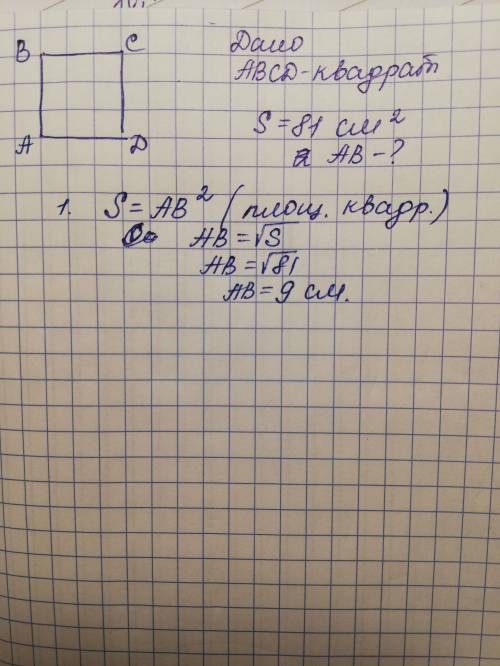 B C
Дано
ABCD-квадрат
A D
S = 81 см²
AB - ?
1. S = AB² (площ. квадр.)
AB = √S
AB = √81
AB = 9 см.